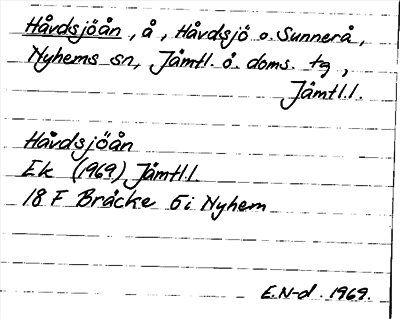 Håvdsjöån, å, Håvdsjö o. Sunnerå,
Nyhems sn, Jämtl. ö. doms. tg,
Jämtl.l.
Håvdsjöån
Ek (1969) Jämtl.l.
18 F Bräcke 5i Nyhem
E.N-d. 1969.